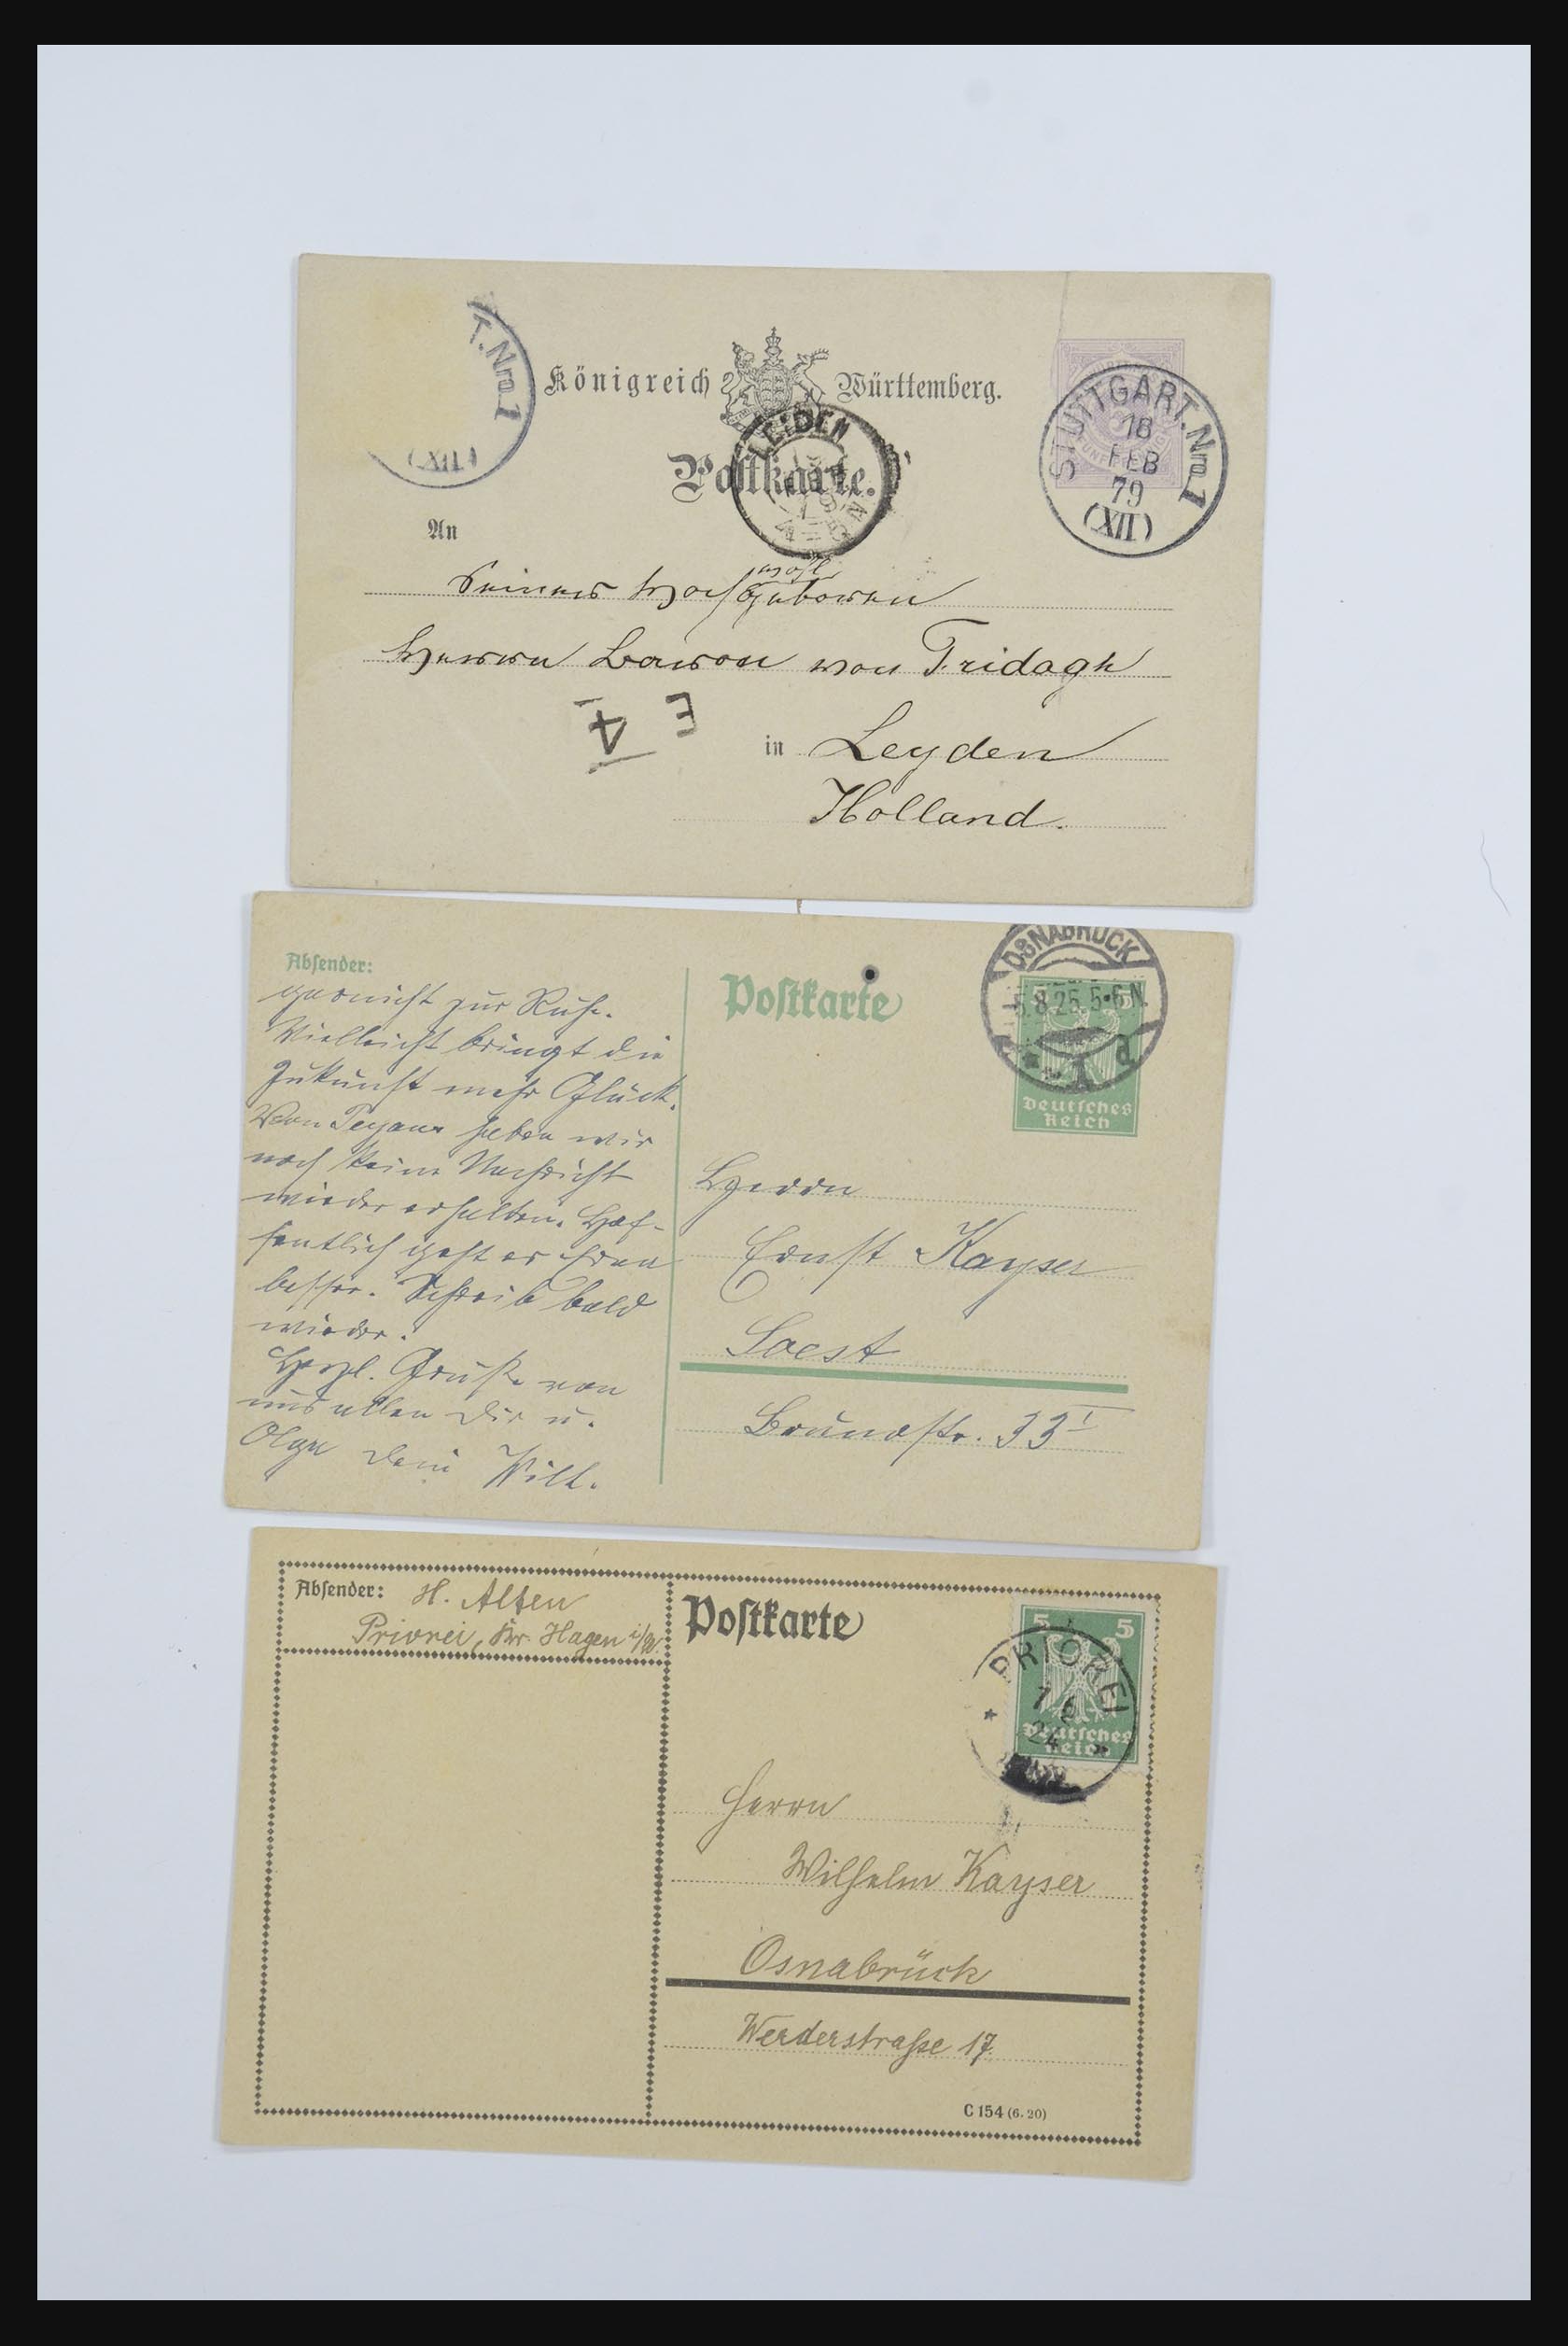 T. Nro. 1
(XII)
Königreich Württemberg.
STUTTGART. Nro. 1
18
FEB
79
(XII)
LEIDEN
Postkarte.
An
Seiner Hochgeboren
wohl
Herrn Baron von Tridagh
E 4
in Leyden
Holland.
Absender:
garnicht zur Ruhe.
Vielleicht bringt die
Zukunft mehr Glück.
Von haben wir
noch keine Nachricht
wieder erhalten. Hof-
fentlich geht es ihnen
besser. Schreib bald
wieder.
Herzl. Grüße von
uns allen Dir u.
Olga Dein Will.
Postkarte
OSNABRÜCK
-5.8.25.5-6 N.
5 5
Deutsches
Reich
Herrn
Ernst Kayser
Soest
Brunostr. 33 I
Absender: H. Alten
Priorei, Kr. Hagen i/W.
Postkarte
5 5
PRIOREI
24
Deutsches
Reich
Herrn
Wilhelm Kayser
Osnabrück
Werderstraße 17.
C 154 (6. 20)